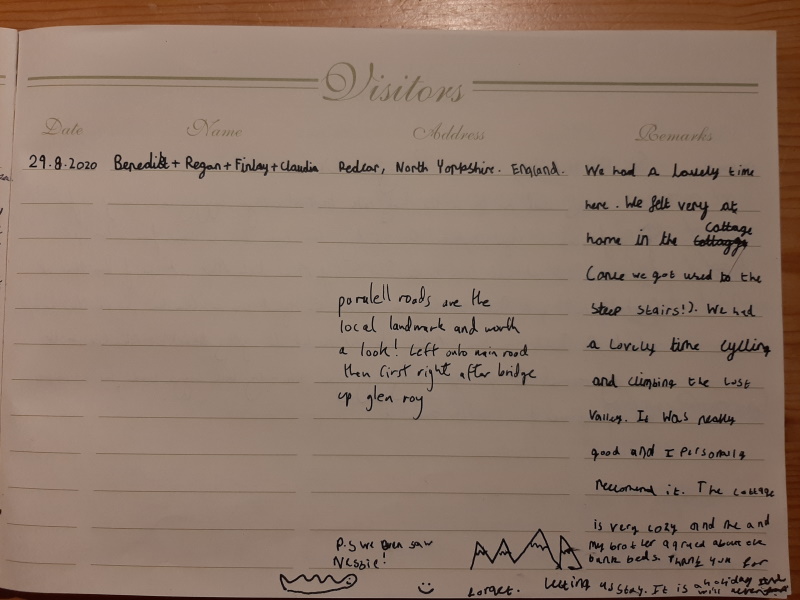 Visitors
Date Name Address Remarks
29.8.2020 Benedikt + Regan + Finlay + Claudia Redcar, North Yorkshire. England. We had a lovely time
here. We felt very at
home in the cottage
(once we got used to the
steep stairs!). We had
a lovely time cycling
and climbing the lost
valley. It was really
good and I personaly
reccomend it. The cottage
is very cozy and me and
my brother agreed about
bunk beds. Thank you for
letting us stay. It is a holiday and
will never
forget.
paralell roads are the
local landmark and worth
a look! Left onto main road
then first right after bridge
up glen roy
P.S we even saw
Nessie!